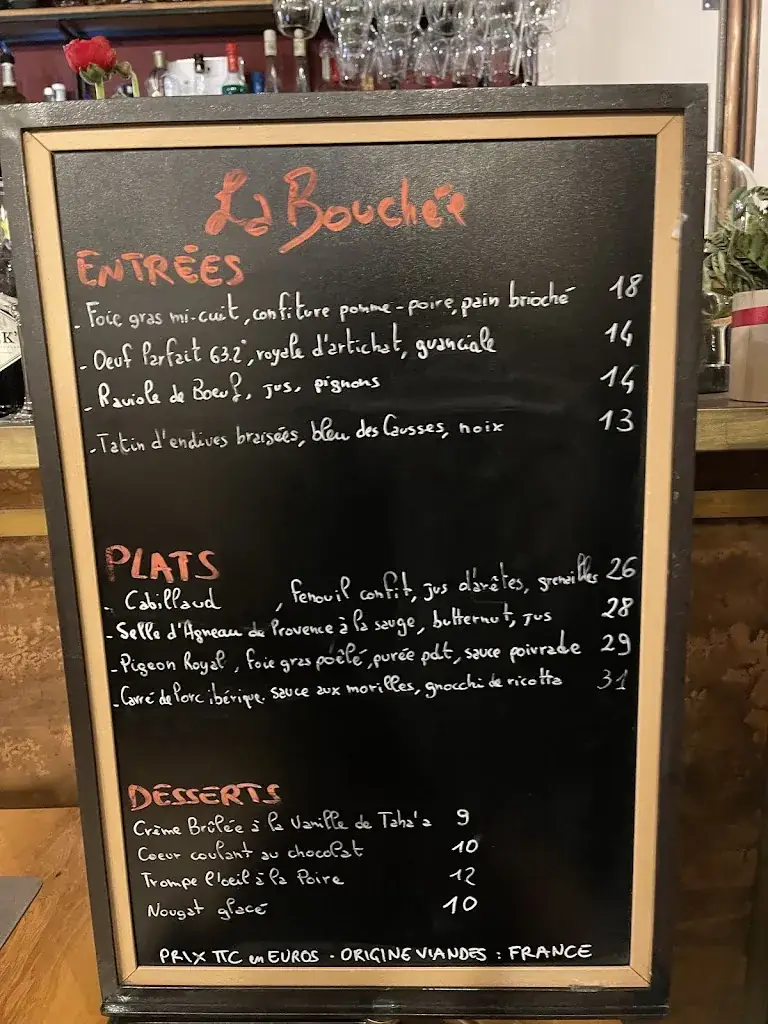 La Bouchée
ENTRÉES
- Foie gras mi-cuit, confiture pomme-poire, pain brioché 18
- Oeuf Parfait 63.2°, royale d'artichat, guanciale 14
- Raviole de Boeuf, jus, pignons 14
- Tatin d'endives braisées, bleu des Causses, noix 13
PLATS
- Cabillaud , fenouil confit, jus d'arêtes, grenailles 26
- Selle d'Agneau de Provence à la sauge, butternut, jus 28
- Pigeon Royal, foie gras poêlé, purée pdt, sauce poivrade 29
- Carré de Porc ibérique. sauce aux morilles, gnocchi de ricotta 31
DESSERTS
Crème Brûlée à la Vanille de Taha'a 9
Coeur coulant au chocolat 10
Trompe l'oeil à la Poire 12
Nougat glacé 10
PRIX TTC en EUROS - ORIGINE VIANDES : FRANCE